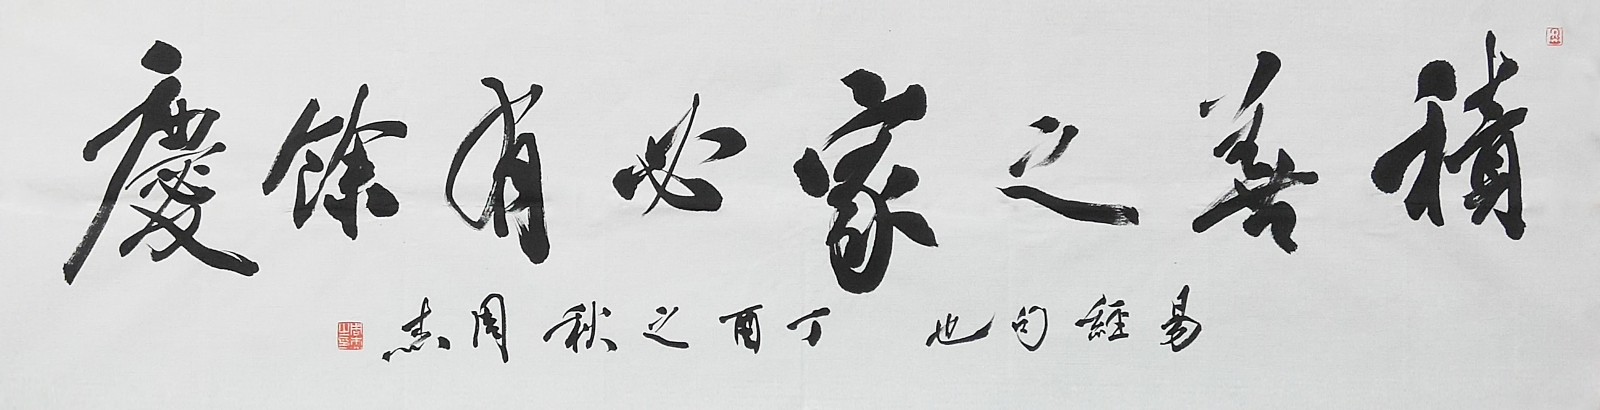 積善之家必有餘慶
易經句也 丁酉之秋 周志